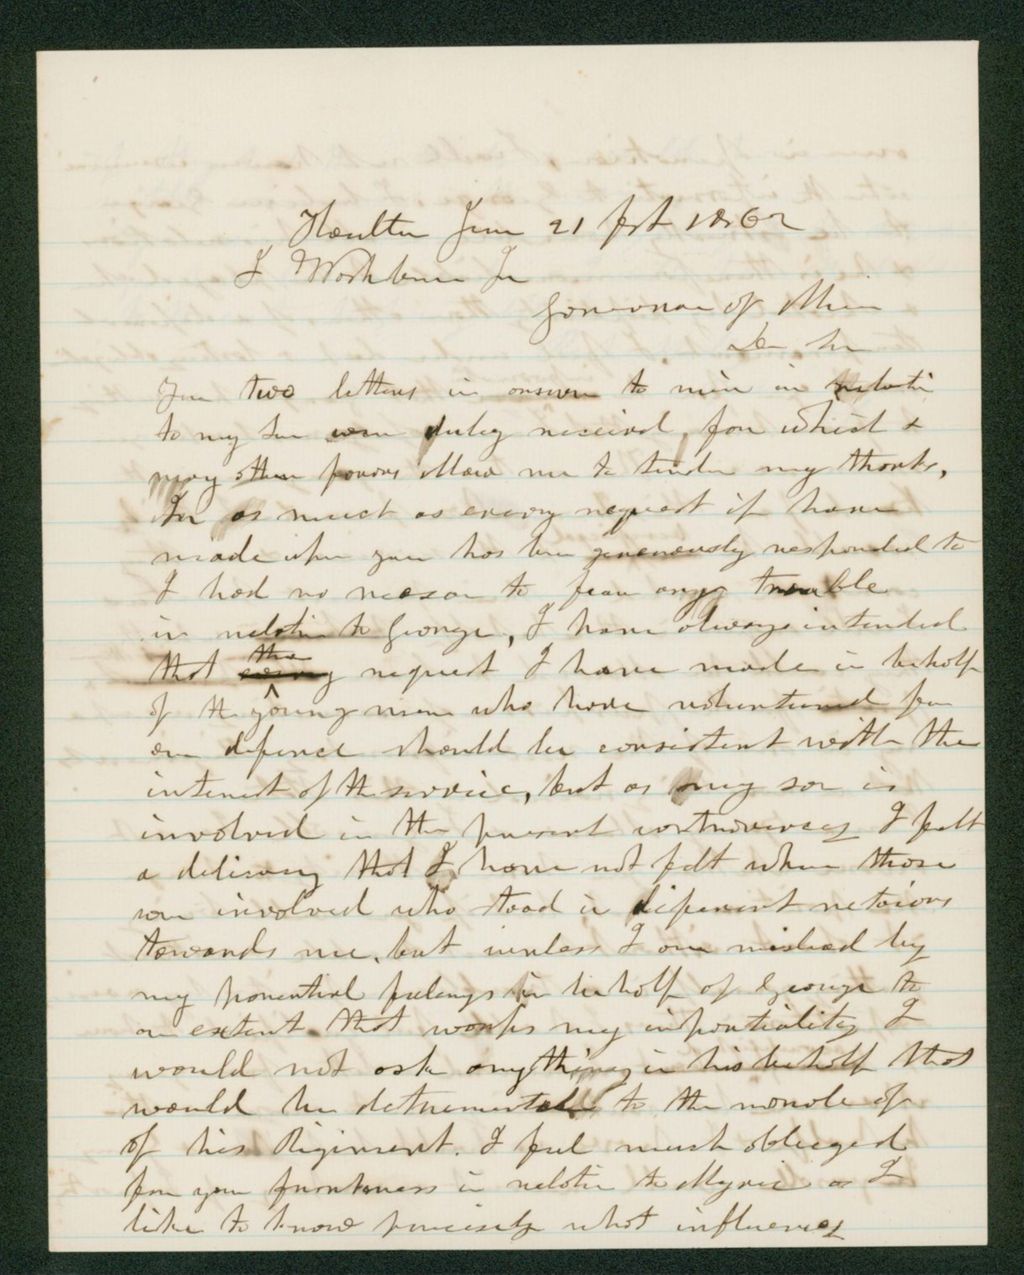 Houlton June 21 fst 1862
I Washburn Jr
Governor of Main
Dr Sir
Your two letters in answer to min in relatin
to my son were duley received, for which &
many other favors allow me to tinder my thanks,
In as much as every request if have
made upon you has ben generously responded to
I had no reason to fear any trouble
in relatin to George, I have always intended
that the request I have made in behalf
of the young men who have voluntured for
our defence should be consistent with the
interest of the service, but as my son is
involved in the present controversey I felt
a delicasy that I have not felt when those
wer involved who stood in diferent
towards me, but unless I am mislead by
my parential feelings in behalf of George to
an extent that warps my impartiality I
would not ask anything in his behalf that
would be detremental to the morale of
of his Rigiment. I feel much obliegd
for your frankness in relatin to as I
like to know precisely what influences